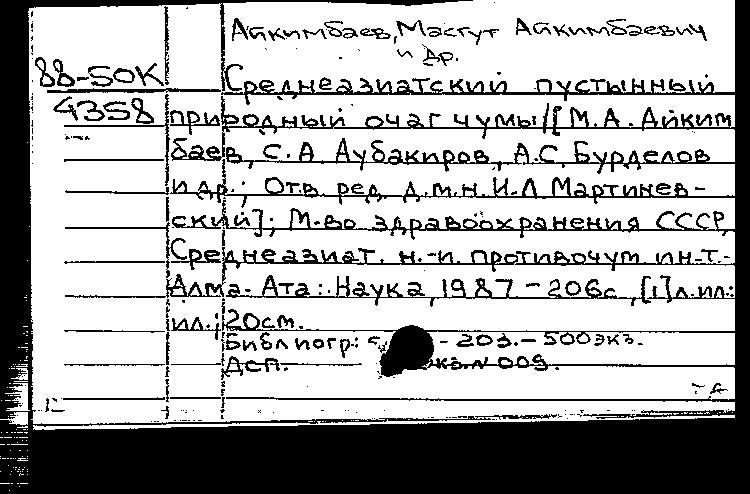 Айкимбаев, Масгут Айкимбаевич
и др.
88-50К Среднеазиатский пустынный
4358 природный очаг чумы/[М.А. Айким
баев, С.А. Аубакиров, А.С. Бурделов
и др.; Отв. ред. д.м.н. И.Л Мартинев-
ский]; М-во здравоохранения СССР,
Среднеазиат. н.-и. противочум ин-т.-
Алма-Ата: Наука, 1987 - 206с, [1]л.ил:
ил.; 20см.
Библиогр: - 203. - 500экз.
ДСП. кз. N 009.